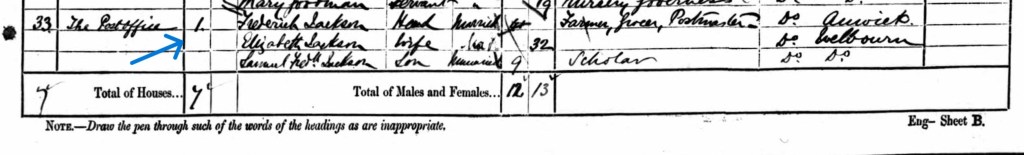 Mary Footman Servant " 19 Nursery Governess
33 The Post office 1. Frederick Jackson Head Married 40 Farmer, Grocer, Postmaster Do Anwick
Elizabeth Jackson Wife Do 32 Do Welbourn
Samuel Fredk Jackson Son Unmarried 9 Scholar Do Do
7 Total of Houses... 7 Total of Males and Females... 12 13
NOTE.—Draw the pen through such of the words of the headings as are inappropriate. Eng— Sheet B.